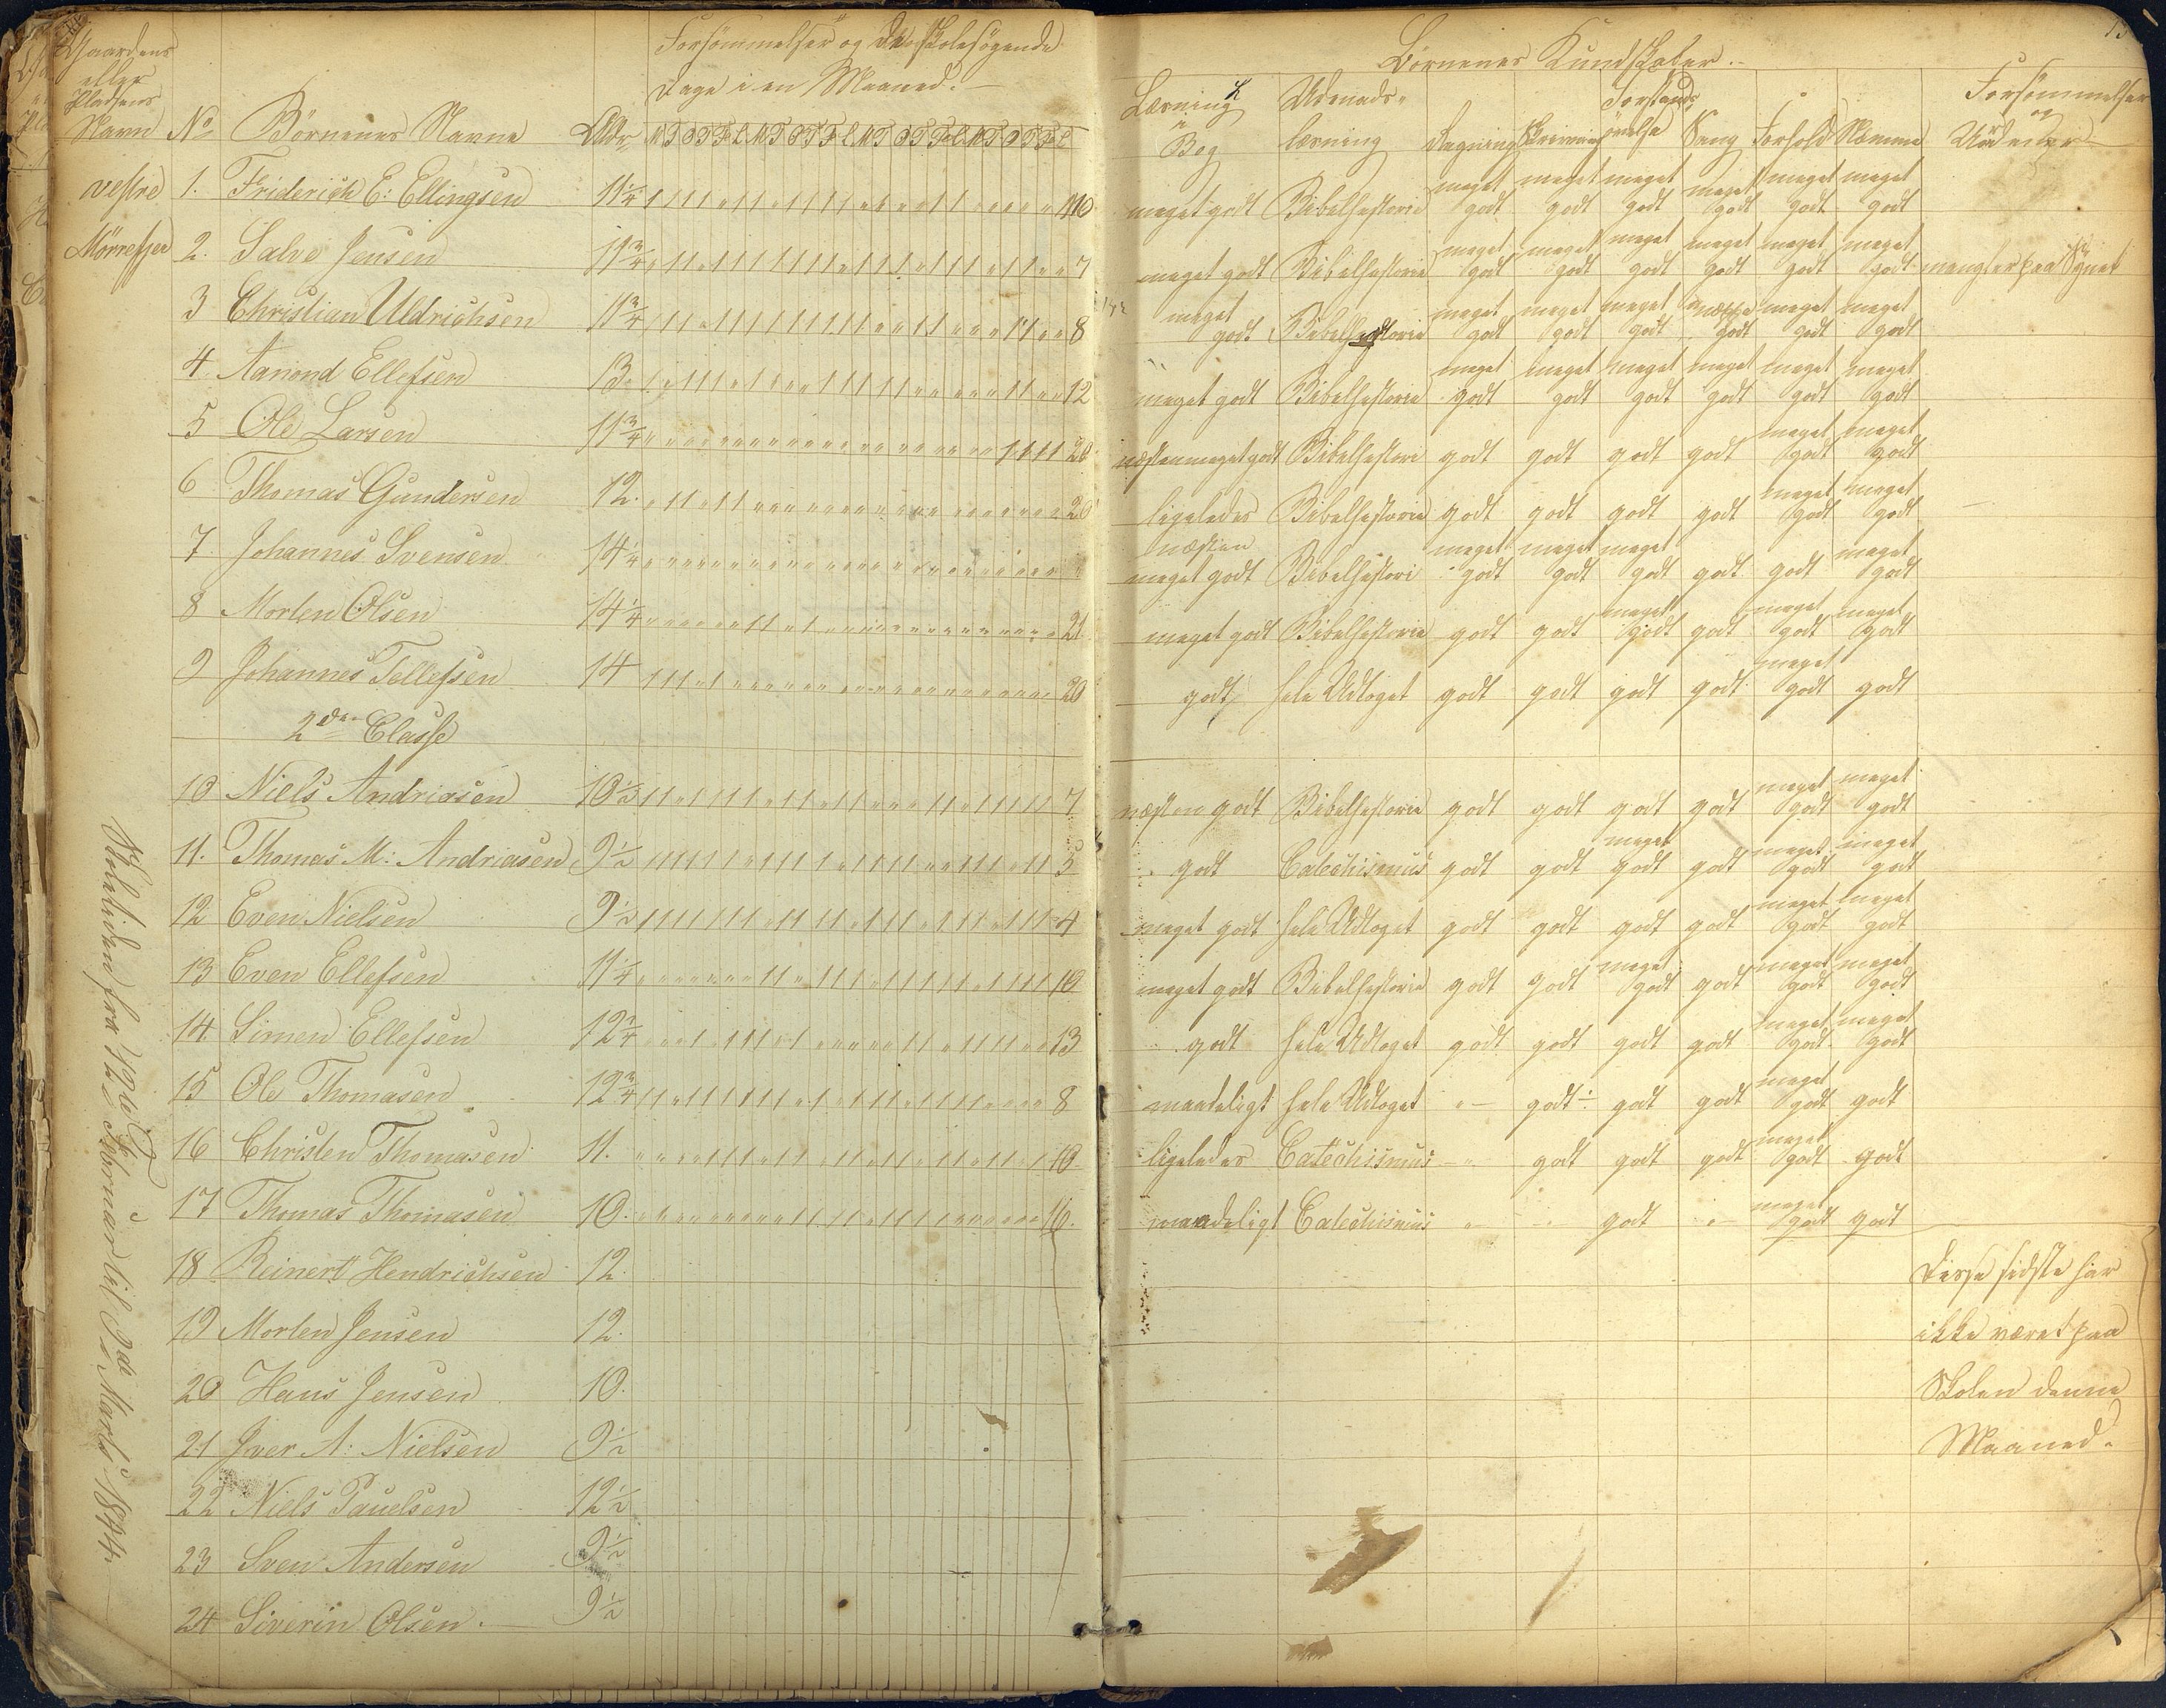 Gaardens
eller
Pladsens
Navn No Börnenes Navne Alder
Forsömmelser og de skolesögende
Dage i en Maaned.
M T O T F L M T O T F L M T O T F L M T O T F L
Börnenes Kundskaber.
Læsning i Bog
Udenads-læsning
Regning
Skrivning
Forstands-övelse
Sang
Forhold
Nemme
Forsömmelser og Uordener
Vestre 1. Friderich E: Ellingsen 11 1/4 10 meget godt Bibelhistorie meget godt meget godt meget godt meget godt meget godt meget godt
Mörrefjer 2. Salve Jensen 11 3/4 7 meget godt Bibelhistorie meget godt meget godt meget godt meget godt meget godt meget godt mangler paa
3 Christian Uldrichsen 11 3/4 8 meget godt Bibelhistorie meget godt meget godt meget godt godt meget godt meget godt
4. Aanond Ellefsen 13. 12 meget godt Bibelhistorie meget godt meget godt meget godt meget godt meget godt meget godt
5 Ole Larsen 11 3/4 20 næsten meget godt Bibelhistori godt godt godt godt meget godt meget godt
6 Thomas Gundersen 12. 20 ligeledes Bibelhistorie godt godt godt godt meget godt meget godt
7. Johannes Svensen 14 1/4 næsten meget godt Bibelhistori meget godt meget godt meget godt godt godt meget godt
8 Morten Olsen 14 1/4 21 meget godt Bibelhistorie godt godt meget godt godt meget godt meget godt
9 Johannes Tellefsen 14 20 godt hele Udtoget godt godt godt godt meget godt godt
2den Classe
10 Niels Andriasen 10 1/3 7 næsten godt Bibelhistorie godt godt godt godt meget godt meget godt
11. Thomas M: Andriasen 9 1/2 5 godt Catechismus godt godt meget godt godt meget godt meget godt
12 Even Nielsen 9 1/2 4 meget godt hele Udtoget godt godt godt godt meget godt meget godt
13 Even Ellefsen 11 1/4 10 meget godt Bibelhistorie godt godt meget godt godt meget godt meget godt
14. Simen Ellefsen 12 1/4 13 godt hele Udtoget godt godt godt godt meget godt meget godt
15 Ole Thomasen 12 3/4 8 maadeligt hele Udtoget " godt godt godt meget godt godt
16 Christen Thomasen 11. 10 ligeledes Catechismus " godt godt godt meget godt godt
17 Thomas Thomasen 10. 16. maadeligt Catechismus " " godt " meget godt godt
18 Reinert Hendrichsen 12. Disse sidste har
19 Morten Jensen 12. ikke været paa
20 Hans Jensen 10. Skolen denne
21 Iver A: Nielsen 9 1/2 Maaned.
22 Niels Pauelsen 12 1/2
23 Sven Andersen 9 1/2
24 Siverin Olsen. 9 1/2
Skoletiden fra 12te Februar til 9de Marts 1844.